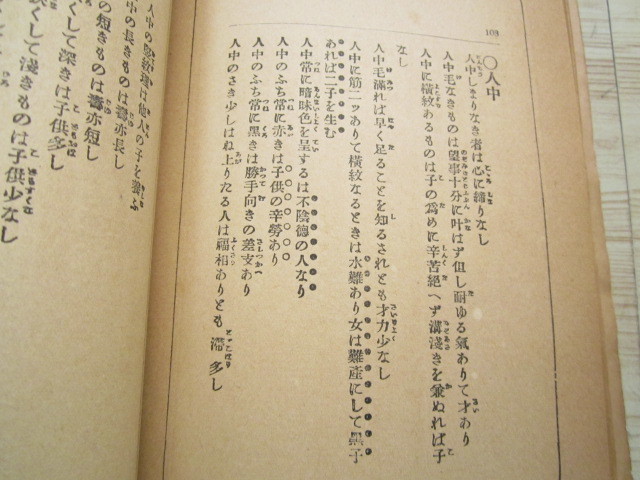 103
〇人中
人中しまりなき者は心に締りなし
人中毛なきものは望事十分に叶はず但し耐ゆる氣ありて才あり
人中に横紋あるものは子の為めに辛苦絕へず溝淺きを兼ぬれば子
なし
人中毛満れば早く足ることを知るされとも才力少なし
人中に筋二ッありて横紋なるときは水難あり女は難産にして黒子
あれば二子を生む
人中常に暗昧色を呈するは不陰德の人なり
人中のふち常に赤きは子供の辛勞あり
人中のふち常に黑きは勝手向きの差支あり
人中のさき少しはね上りたる人は福相ありとも滯多し
人の子を養ふ
中の長きものは壽亦長し
の短きものは壽亦短し
くして深きは子供多し
くして淺きものは子供少なし